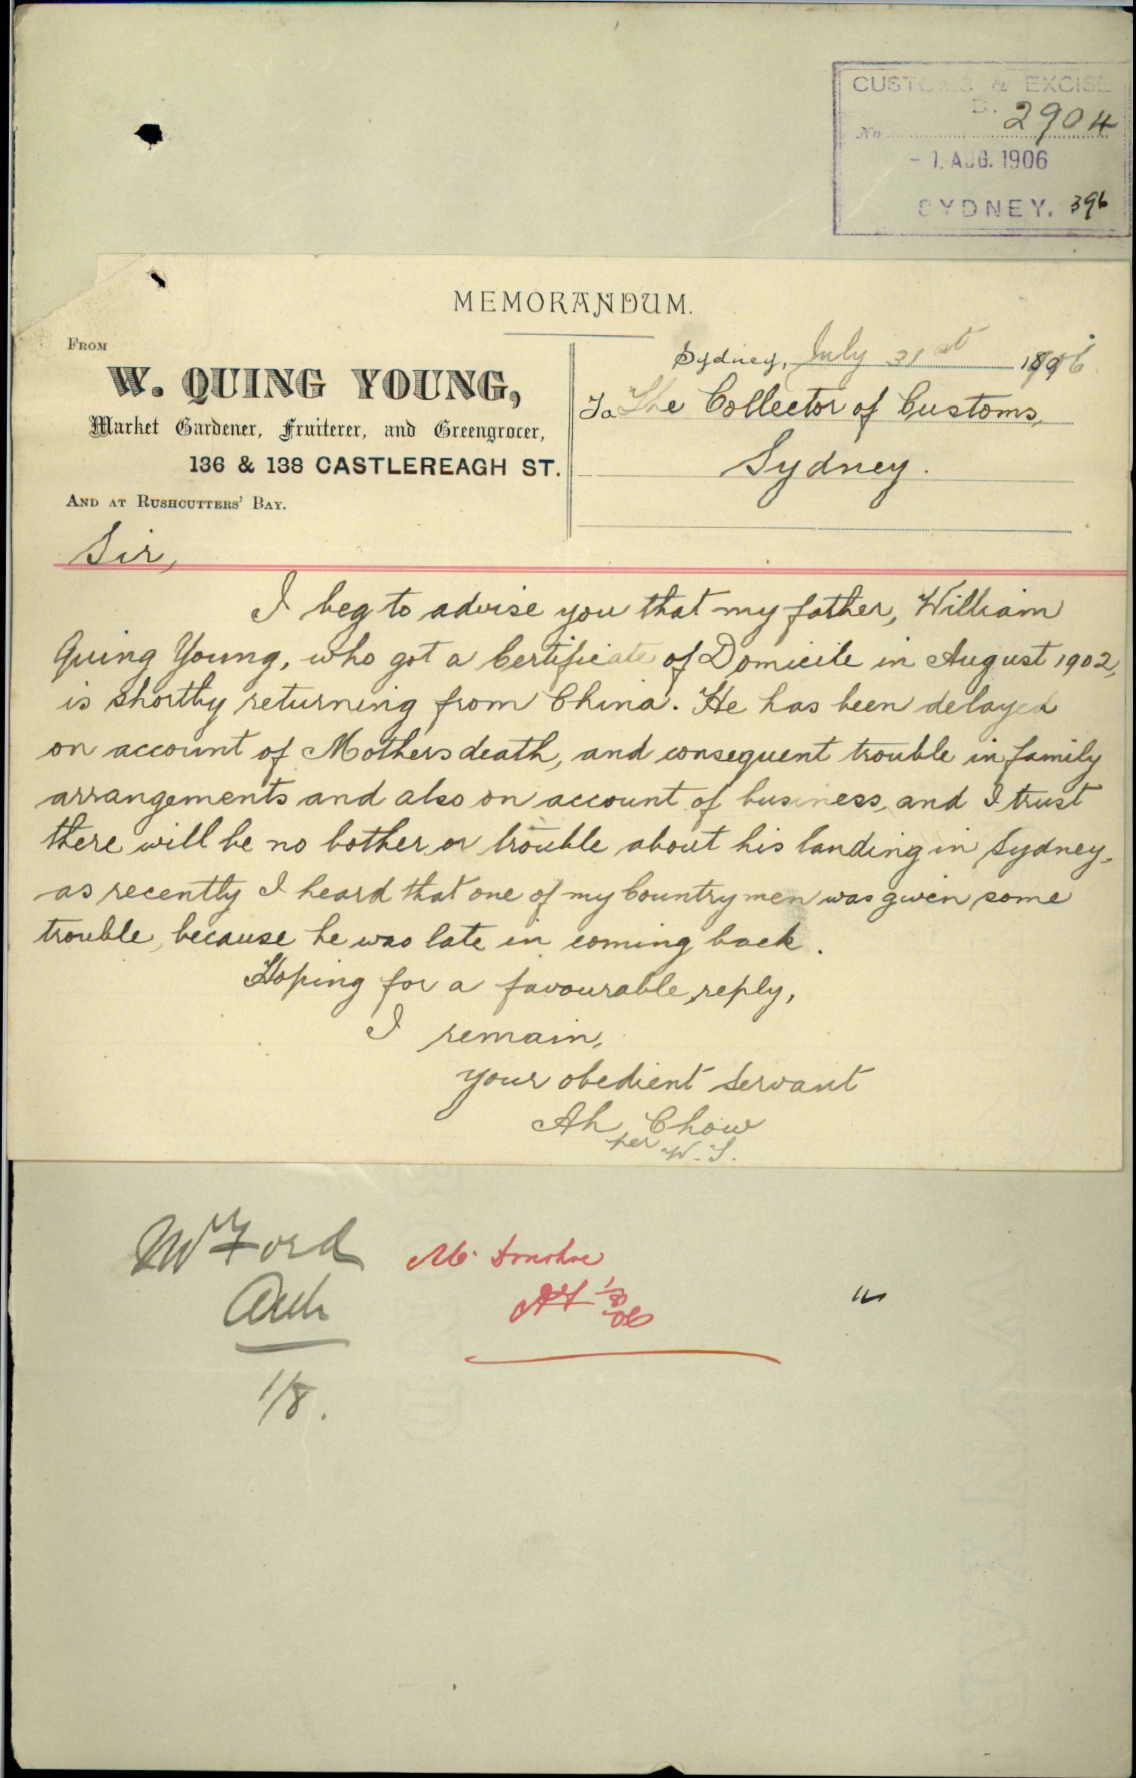 CUSTOMS & EXCISE
No. 2904
- 1. AUG. 1906
SYDNEY. 396
MEMORANDUM.
FROM
W. QUING YOUNG,
Market Gardener, Fruiterer, and Greengrocer,
136 & 138 CASTLEREAGH ST.
AND AT RUSHCUTTERS' BAY.
Sydney, July 31st 1906
To The Collector of Customs,
Sydney.
Sir,
I beg to advise you that my father, William
Quing Young, who got a Certificate of Domicile in August 1902,
is shortly returning from China. He has been delayed
on account of Mothers death, and consequent trouble in family
arrangements and also on account of business, and I trust
there will be no bother or trouble about his landing in Sydney,
as recently I heard that one of my Countrymen was given some
trouble, because he was late in coming back.
Hoping for a favourable reply,
I remain,
your obedient Servant
Ah Chow
per W. Y.
Mr Ford
1/8.
Mr Donohoe
1/8/06